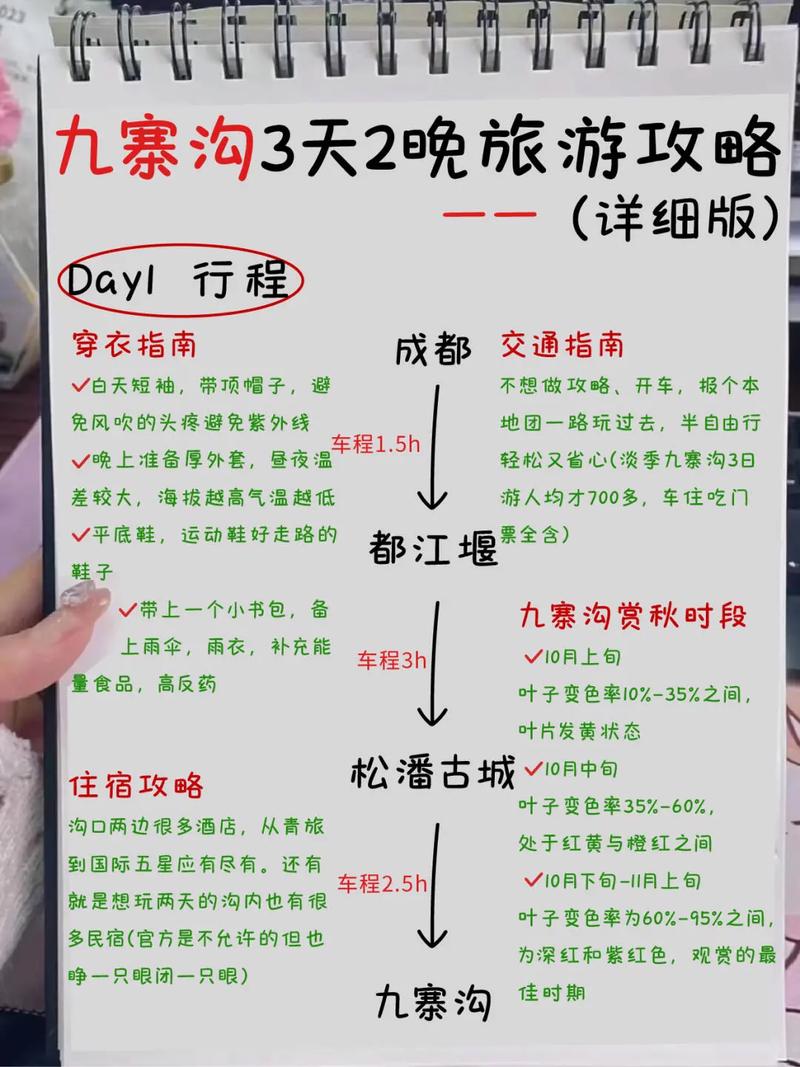 023
九寨沟3天2晚旅游攻略
——（详细版）
Day1 行程
穿衣指南
✓白天短袖，带顶帽子，避
免风吹的头疼避免紫外线
✓晚上准备厚外套，昼夜温
差较大，海拔越高气温越低
✓平底鞋，运动鞋好走路的
鞋子
✓带上一个小书包，备
上雨伞，雨衣，补充能
量食品，高反药
住宿攻略
沟口两边很多酒店，从青旅
到国际五星应有尽有。还有
就是想玩两天的沟内也有很
多民宿(官方是不允许的但也
睁一只眼闭一只眼)
成都
车程1.5h
都江堰
车程3h
松潘古城
车程2.5h
九寨沟
交通指南
不想做攻略、开车，报个本
地团一路玩过去，半自由行
轻松又省心(淡季九寨沟3日
游人均才700多，车住吃门
票全含)
九寨沟赏秋时段
✓10月上旬
叶子变色率10%-35%之间，
叶片发黄状态
✓10月中旬
叶子变色率35%-60%，
处于红黄与橙红之间
✓10月下旬-11月上旬
叶子变色率为60%-95%之间，
为深红和紫红色，观赏的最
佳时期